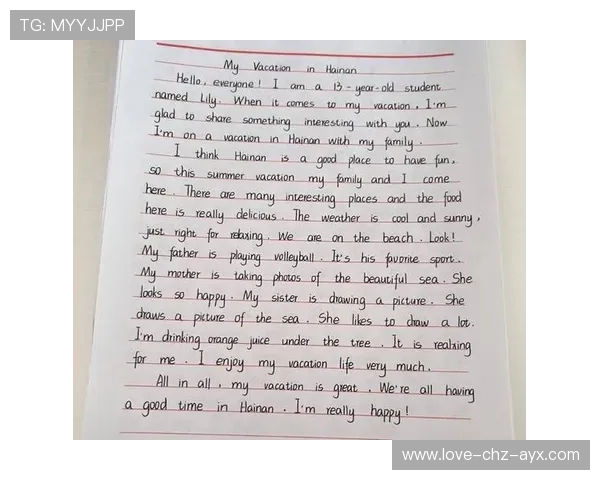 TG: MYYJJPP
My Vacation in Hainan
Hello, everyone! I am a 13-year-old student
named Lily. When it comes to my vacation, I'm
glad to share something interesting with you. Now
I'm on a vacation in Hainan with my family.
I think Hainan is a good place to have fun,
so this summer vacation my family and I come
here. There are many interesting places and the food
here is really delicious. The weather is cool and sunny,
just right for relaxing. We are on the beach. Look!
My father is playing volleyball. It's his favorite sport.
My mother is taking photos of the beautiful sea. She
looks so happy. My sister is drawing a picture. She
draws a picture of the sea. She likes to draw a lot.
I'm drinking orange juice under the tree. It is realxing
for me. I enjoy my vacation life very much.
All in all, my vacation is great. We're all having
a good time in Hainan. I'm really happy!
www.love-chz-ayx.com